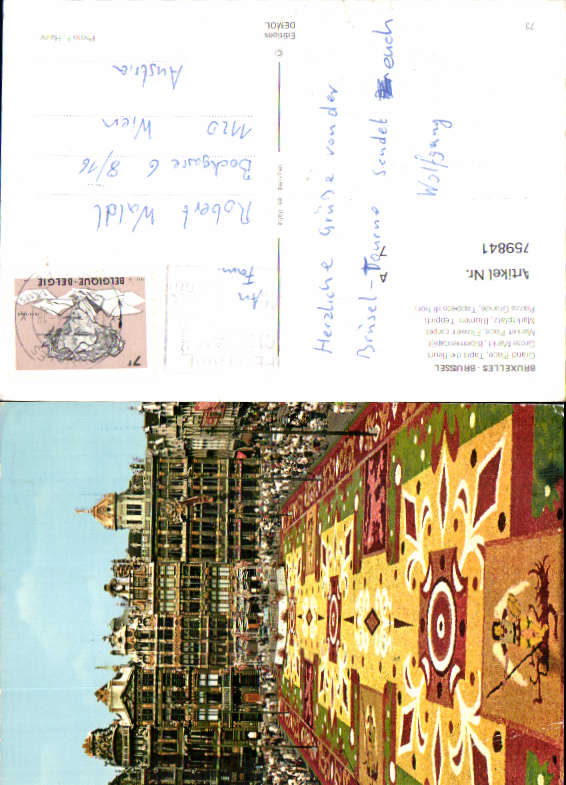 BRUXELLES - BRUSSEL
Grand' Place, Tapis de fleurs
Grote Markt, Bloementapijt
Market Place, Flower carpet
Marktplatz, Blumen Teppich
Piazza Grande, Tappeto di fiori
Artikel Nr.
759841
Herzliche Grüße von der
Brüssel-Tournee sendet euch
Wolfgang
An
Fam.
Robert Waldl
Bockgasse 6 8/16
1120 Wien
Austria
BELGIQUE-BELGIE
7F
Editions
DEMOL
©
73